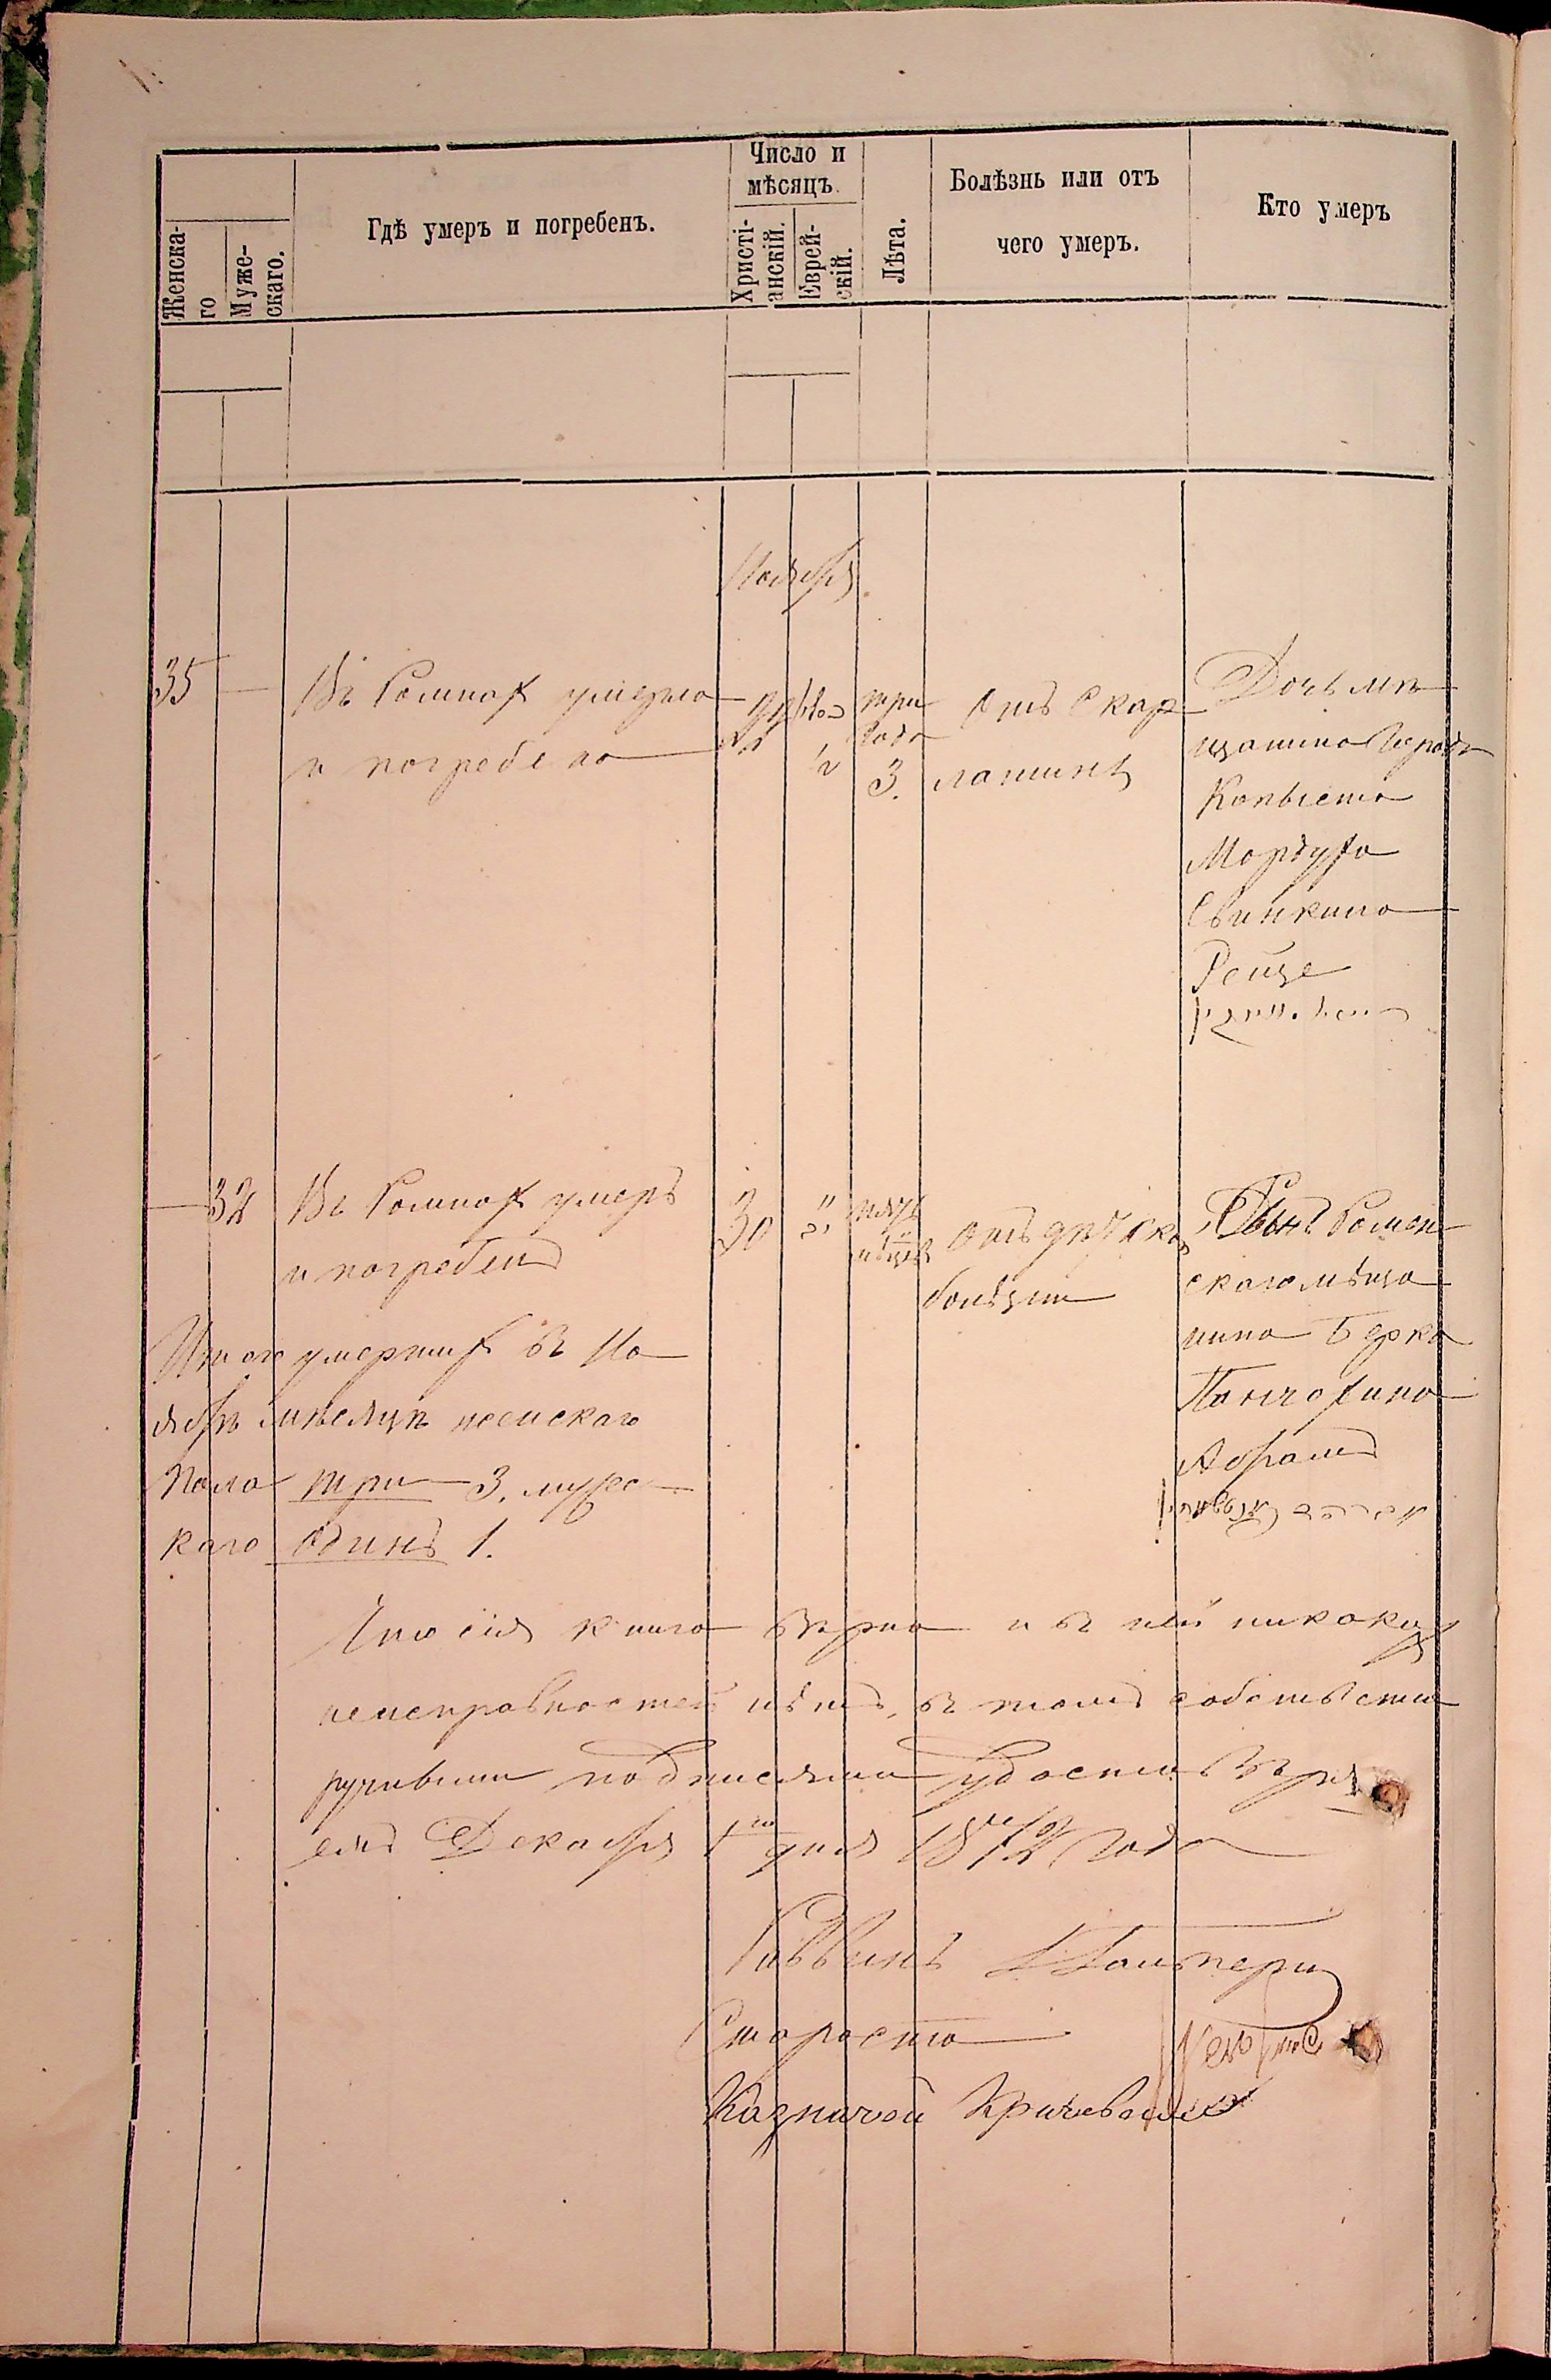 Число и
мѣсяцъ.
Женска-
го
Муже-
скаго.
Гдѣ умеръ и погребенъ.
Христі-
анскій.
Еврей-
скій.
Лѣта.
Болѣзнь или отъ
чего умеръ.
Кто умеръ
Ноября
35 —
Въ Ромнах умерла
и погребена
три
года
3.
Отъ Скар
латины
Дочь мѣ
щанина Города
Копыста
Мордуха
Свинкина
Рейце
— 32
Въ Ромнах умеръ
и погребенъ
30
пять
мѣсяцев
Отъ дѣтской
болѣзни
Сынъ Ромен
скаго мѣща
нина Берка
Абрамъ
Итого умершихъ въ Но
ябрѣ мѣсяцѣ женскаго
пола три 3. мужес
каго одинъ 1.
Что сія книга вѣрна и въ ней никаких
неисправностей нѣтъ, въ томъ собственно
ручными подписями удостовѣря
емъ Декабря 1го дня 1872 Года
Раввинъ Гальперин
Староста
Казначей Кричевский